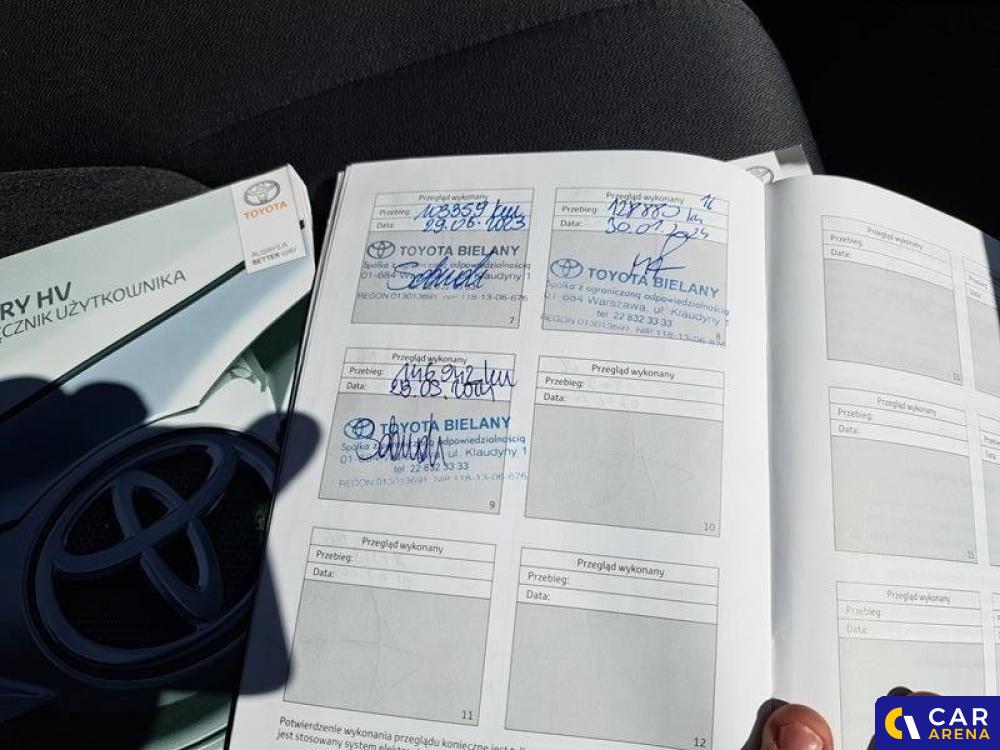 TOYOTA
ALWAYS A
BETTER WAY
RY HV
ĘCZNIK UŻYTKOWNIKA
Przegląd wykonany
Przebieg: 103359 km
Data: 29.06.2023
TOYOTA BIELANY
Spółka z ograniczoną odpowiedzialnością
01-684 Warszawa, ul. Klaudyny 1
REGON 013013691 NIP 118-13-06-676
7
Przegląd wykonany
Przebieg: 128880 km
Data: 30.01.2024
TOYOTA BIELANY
Spółka z ograniczoną odpowiedzialnością
01-684 Warszawa, ul. Klaudyny 1
tel. 22 832 33 33
REGON 013013691, NIP 118-13-06-676
8
Przegląd wykonany
Przebieg: 146942 km
Data:
TOYOTA BIELANY
Spółka z odpowiedzialnością
01 ul. Klaudyny 1
tel. 22 832 33 33
REGON 013013691 NIP 118-13-06-676
9
Przegląd wykonany
Przebieg:
Data:
10
Przegląd wykonany
Przebieg:
Data:
11
Przegląd wykonany
Przebieg:
Data:
12
Potwierdzenie wykonania przeglądu konieczne jest
jest stosowany system
Przegląd wykonany
Przebieg:
Data:
Przegląd wykonany
Przebieg:
Data:
15
Przegląd wykonany
Przebieg:
Data:
CAR
ARENA